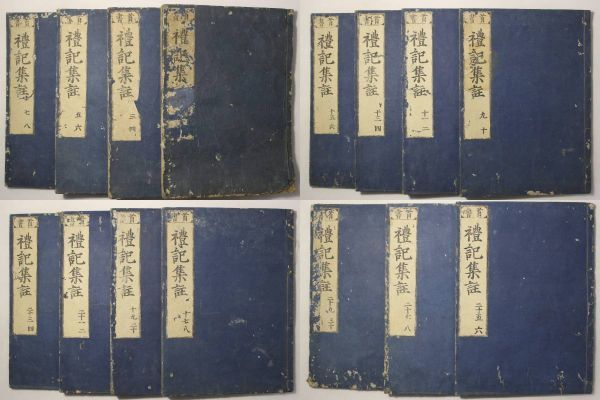 首書
禮記集
首書
禮記集註
三四
首書
禮記集註
五六
首書
禮記集註
七八
首書
禮記集註
九十
首書
禮記集註
十一二
首書
禮記集註
十三四
首書
禮記集註
十五六
首書
禮記集註
十七八
首書
禮記集註
十九二十
首書
禮記集註
二十一二
首書
禮記集註
二十三四
首書
禮記集註
二十五六
首書
禮記集註
二十七八
首書
禮記集註
二十九三十